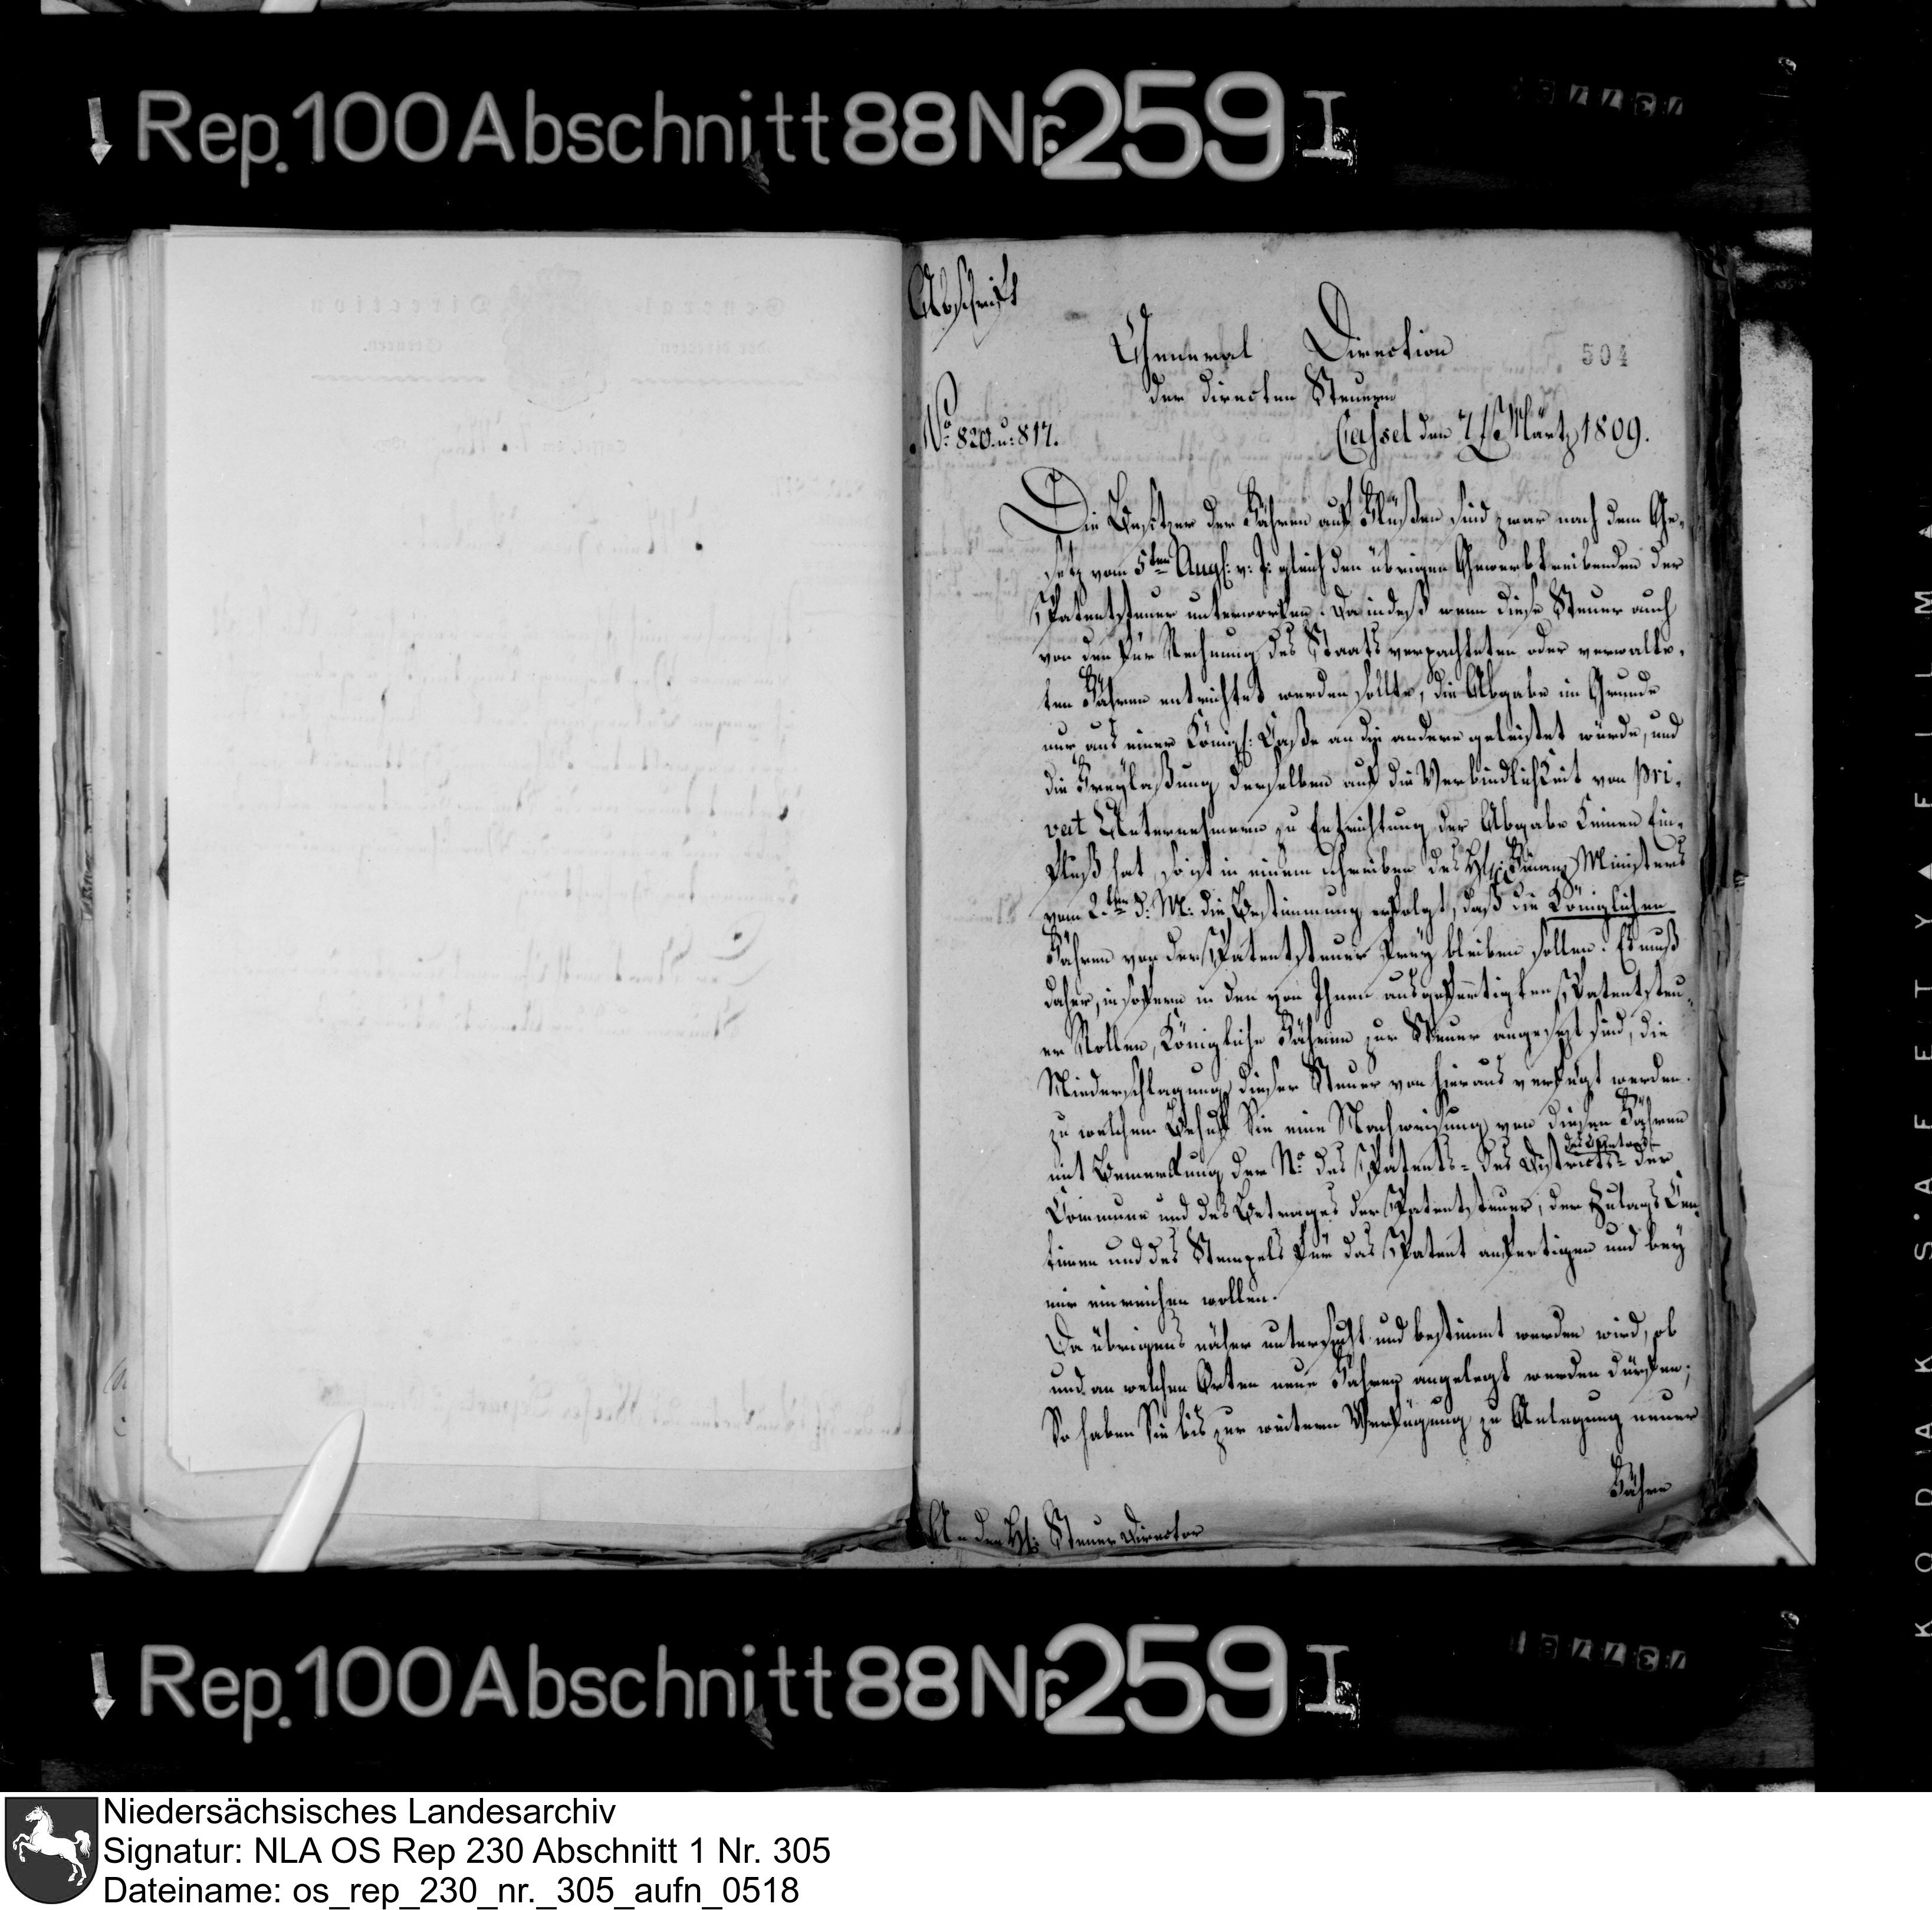 Rep. 100 Abschnitt 88 Nr. 259 I
Abschrift
General Direction
504
der directen Steuern
No. 820. u. 817.
Cassel den 7ten Märtz 1809.
Die Besitzer der Fähren auf Flüßen sind zwar nach dem Ge-
setz vom 5ten Aug: v: J: gleich den übrigen Gewerbtreibenden der
Patentsteuer unterworfen. Da indeß wenn diese Steuer auch
von den für Rechnung des Staats verpachteten oder verwalte-
ten Fähren entrichtet werden sollte, die Abgabe im Grunde
nur aus einer Königl: Casse an die andere geleistet würde, und
die Freylaßung derselben auf die Verbindlichkeit von Pri-
vat Unternehmern zu Entrichtung der Abgabe keinen Ein-
fluß hat, so ist in einem Schreiben des H: Finanz Ministers
vom 2ten d: M: die Bestimmung erfolgt, daß die Königlichen
Fähren von der Patentsteuer frey bleiben sollen. Es muß
daher, insofern in den von Ihnen ausgefertigten Patentsteu-
er Rollen, Königliche Fähren zur Steuer angesezt sind, die
Niederschlagung dieser Steuer von hieraus verfügt werden.
zu welchem Behuf Sie eine Nachweisung von diesen Fähren
des Cantons
mit Bemerkung der No. des Patents- des Districts- der
Commune und des Betrages der Patentsteuer, der Zulags Cen-
timen und des Stempels für das Patent anfertigen und bey
mir einreichen wollen.
Da übrigens näher untersucht und bestimmt werden wird, ob
und an welchen Orten neue Fähren angelegt werden dürfen;
So haben Sie bis zur weitern Verfügung zu Anlegung neuer
Fähren
An den H: Steuer Director
Rep. 100 Abschnitt 88 Nr. 259 I
KODAK SAFETY FILM
Niedersächsisches Landesarchiv
Signatur: NLA OS Rep 230 Abschnitt 1 Nr. 305
Dateiname: os_rep_230_nr._305_aufn_0518